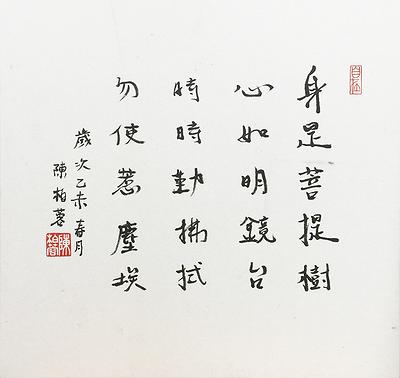 自在
身是菩提樹
心如明鏡台
時時勤拂拭
勿使惹塵埃
歲次乙未春月
陳柏